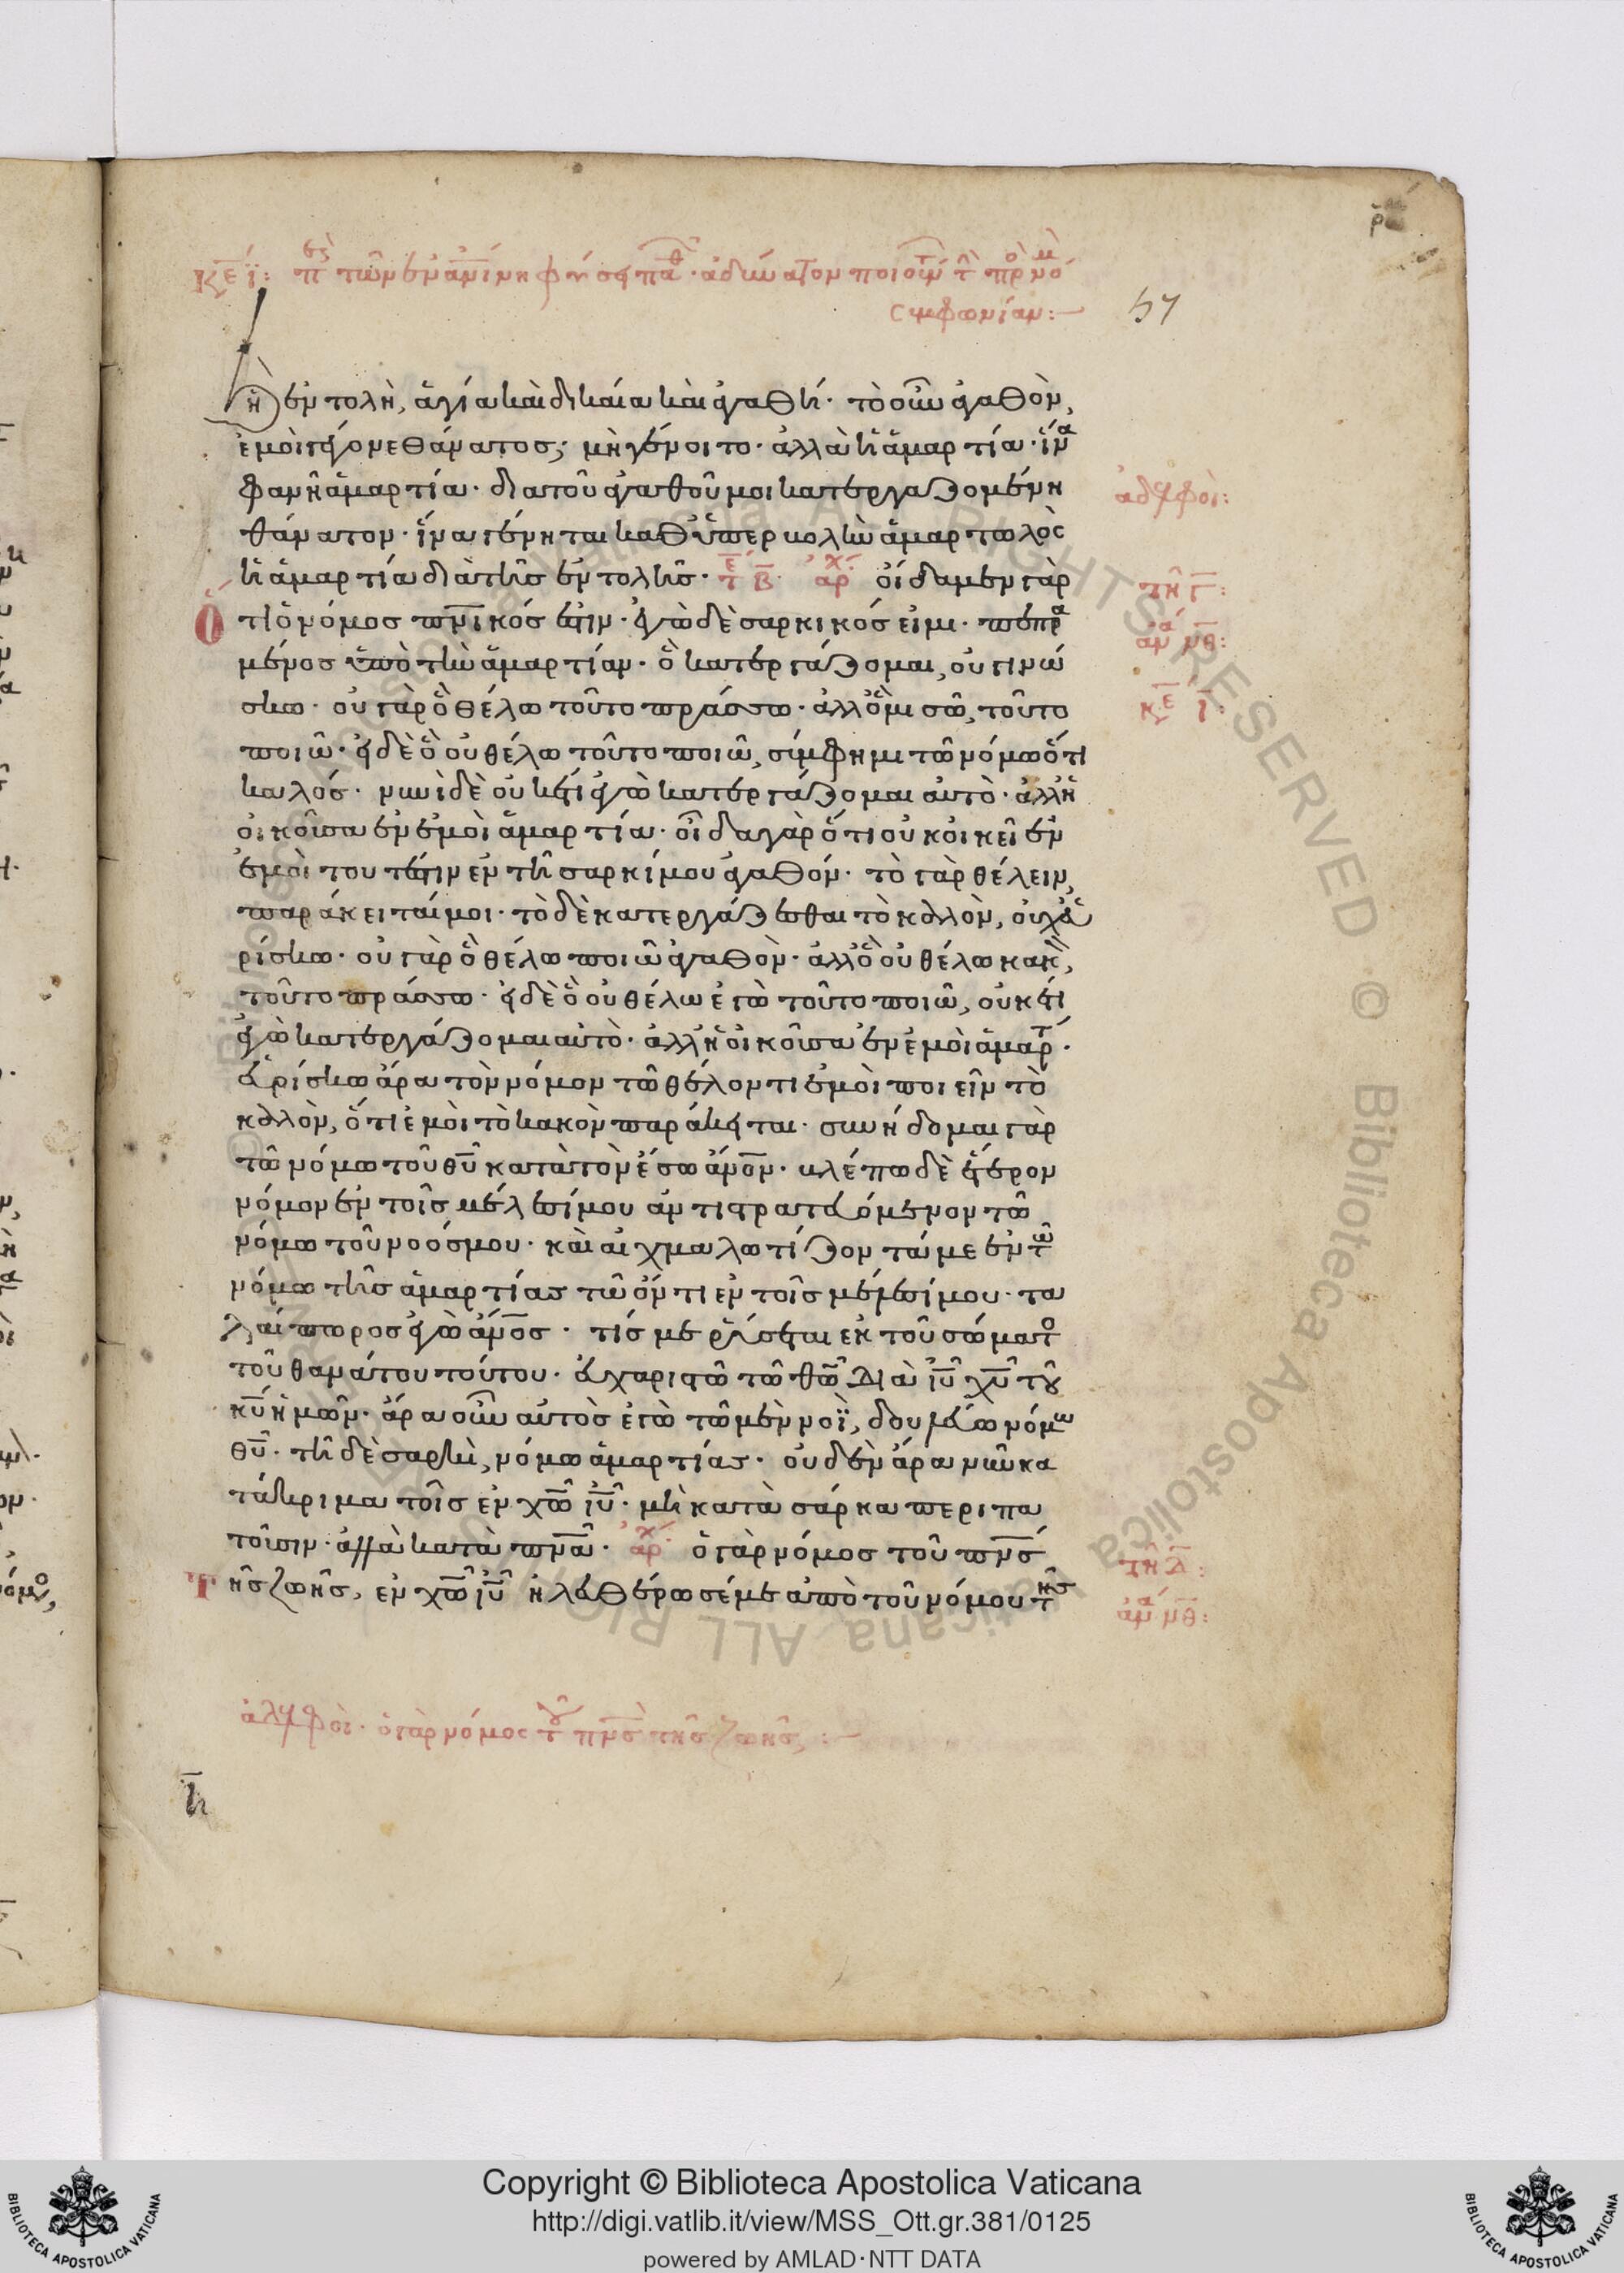 κε ι: π τῶν ἐν ἀνίνη φύσει παθ · ἀδύνατον ποιούντ τὴ πρ νόμ
συμφωνίαν:—
57
ἡ ἐντολὴ, ἁγία καὶ δικαία καὶ ἀγαθή· τὸ οὖν ἀγαθὸν,
ἐμοὶ γέγονε θάνατος; μὴ γένοιτο· ἀλλὰ ἡ ἁμαρτία· ἵνα
φανῆ ἁμαρτία· διατοῦ ἀγαθοῦ μοι κατεργαζομένη
θάνατον· ἵνα γένηται καθ ὑπερβολὴν ἁμαρτωλὸς
ἡ ἁμαρτία διὰ τῆς ἐντολῆς· τέ β· ἀρχ οἴδαμεν γὰρ
ὅτι ὁ νόμος πνικός ἐστιν· ἐγὼ δὲ σαρκικός εἰμι· πεπρα
μένος ὑπὸ τὴν ἁμαρτίαν· ὃ κατεργάζομαι, οὐ γινώ
σκω· οὐ γὰρ ὃ θέλω τοῦτο πράσσω· ἀλλ ὃ μισῶ, τοῦτο
ποιῶ· εἰ δὲ ὃ οὐ θέλω τοῦτο ποιῶ, σύμφημι τῶ νόμω ὅτι
καλός· νυνὶ δὲ οὐκέτι ἐγὼ κατεργάζομαι αὐτὸ· ἀλλ ἡ
οἰκοῦσα ἐν ἐμοὶ ἁμαρτία· οἶδα γὰρ ὅτι οὐκ οἰκεῖ ἐν
ἐμοὶ τουτέστιν ἐν τῆ σαρκί μου ἀγαθόν· τὸ γὰρ θέλειν,
παράκειταί μοι· τὸ δὲ κατεργάζεσθαι τὸ καλὸν, οὐχ εὑ
ρίσκω· οὐ γὰρ ὃ θέλω ποιῶ ἀγαθὸν· ἀλλ ὃ οὐ θέλω κακὸν,
τοῦτο πράσσω· εἰ δὲ ὃ οὐ θέλω ἐγὼ τοῦτο ποιῶ, οὐκέτι
ἐγὼ κατεργάζομαι αὐτὸ· ἀλλ ἡ οἰκοῦσα ἐν ἐμοὶ ἁμαρτ·
εὑρίσκω ἄρα τὸν νόμον τῶ θέλοντι ἐμοὶ ποιεῖν τὸ
καλὸν, ὅτι ἐμοὶ τὸ κακὸν παράκειται· συνήδομαι γὰρ
τῶ νόμω τοῦ θυ κατὰ τὸν ἔσω ἄνον· βλέπω δὲ ἕτερον
νόμον ἐν τοῖς μέλεσί μου ἀντιστρατευόμενον τῶ
νόμω τοῦ νοός μου· καὶ αἰχμαλωτίζοντά με ἐν τῶ
νόμω τῆς ἁμαρτίας τῶ ὄντι ἐν τοῖς μέλεσί μου· τα
λαίπωρος ἐγὼ ἄνος· τίς με ῥύσεται ἐκ τοῦ σώματο
τοῦ θανάτου τούτου· εὐχαριστῶ τῶ θῶ διὰ ιυ χυ τοῦ
κυ ἡμῶν· ἄρα οὖν αὐτὸς ἐγὼ τῶ μὲν νοῒ, δουλεύω νόμω
θυ· τῆ δὲ σαρκὶ, νόμω ἁμαρτίας· οὐδὲν ἄρα νῦν κα
τάκριμα τοῖς ἐν χω ιυ· μὴ κατὰ σάρκα περιπα
τοῦσιν· ἀλλὰ κατὰ πνα· ἀρχ ὁ γὰρ νόμος τοῦ πνς
τῆς ζωῆς, ἐν χω ιυ ἠλευθέρωσέ με ἀπὸ τοῦ νόμου τῆς
ἀδελφοὶ:
τῆ γ:
ἀνα νθ:
κε ι:
τῆ δ:
ἀνα νθ:
ἀδελφοὶ· ὁ γὰρ νόμος τοῦ πνς τῆς ζωῆς, :—
Copyright © Biblioteca Apostolica Vaticana
http://digi.vatlib.it/view/MSS_Ott.gr.381/0125
powered by AMLAD·NTT DATA
BIBLIOTECA APOSTOLICA VATICANA
BIBLIOTECA APOSTOLICA VATICANA